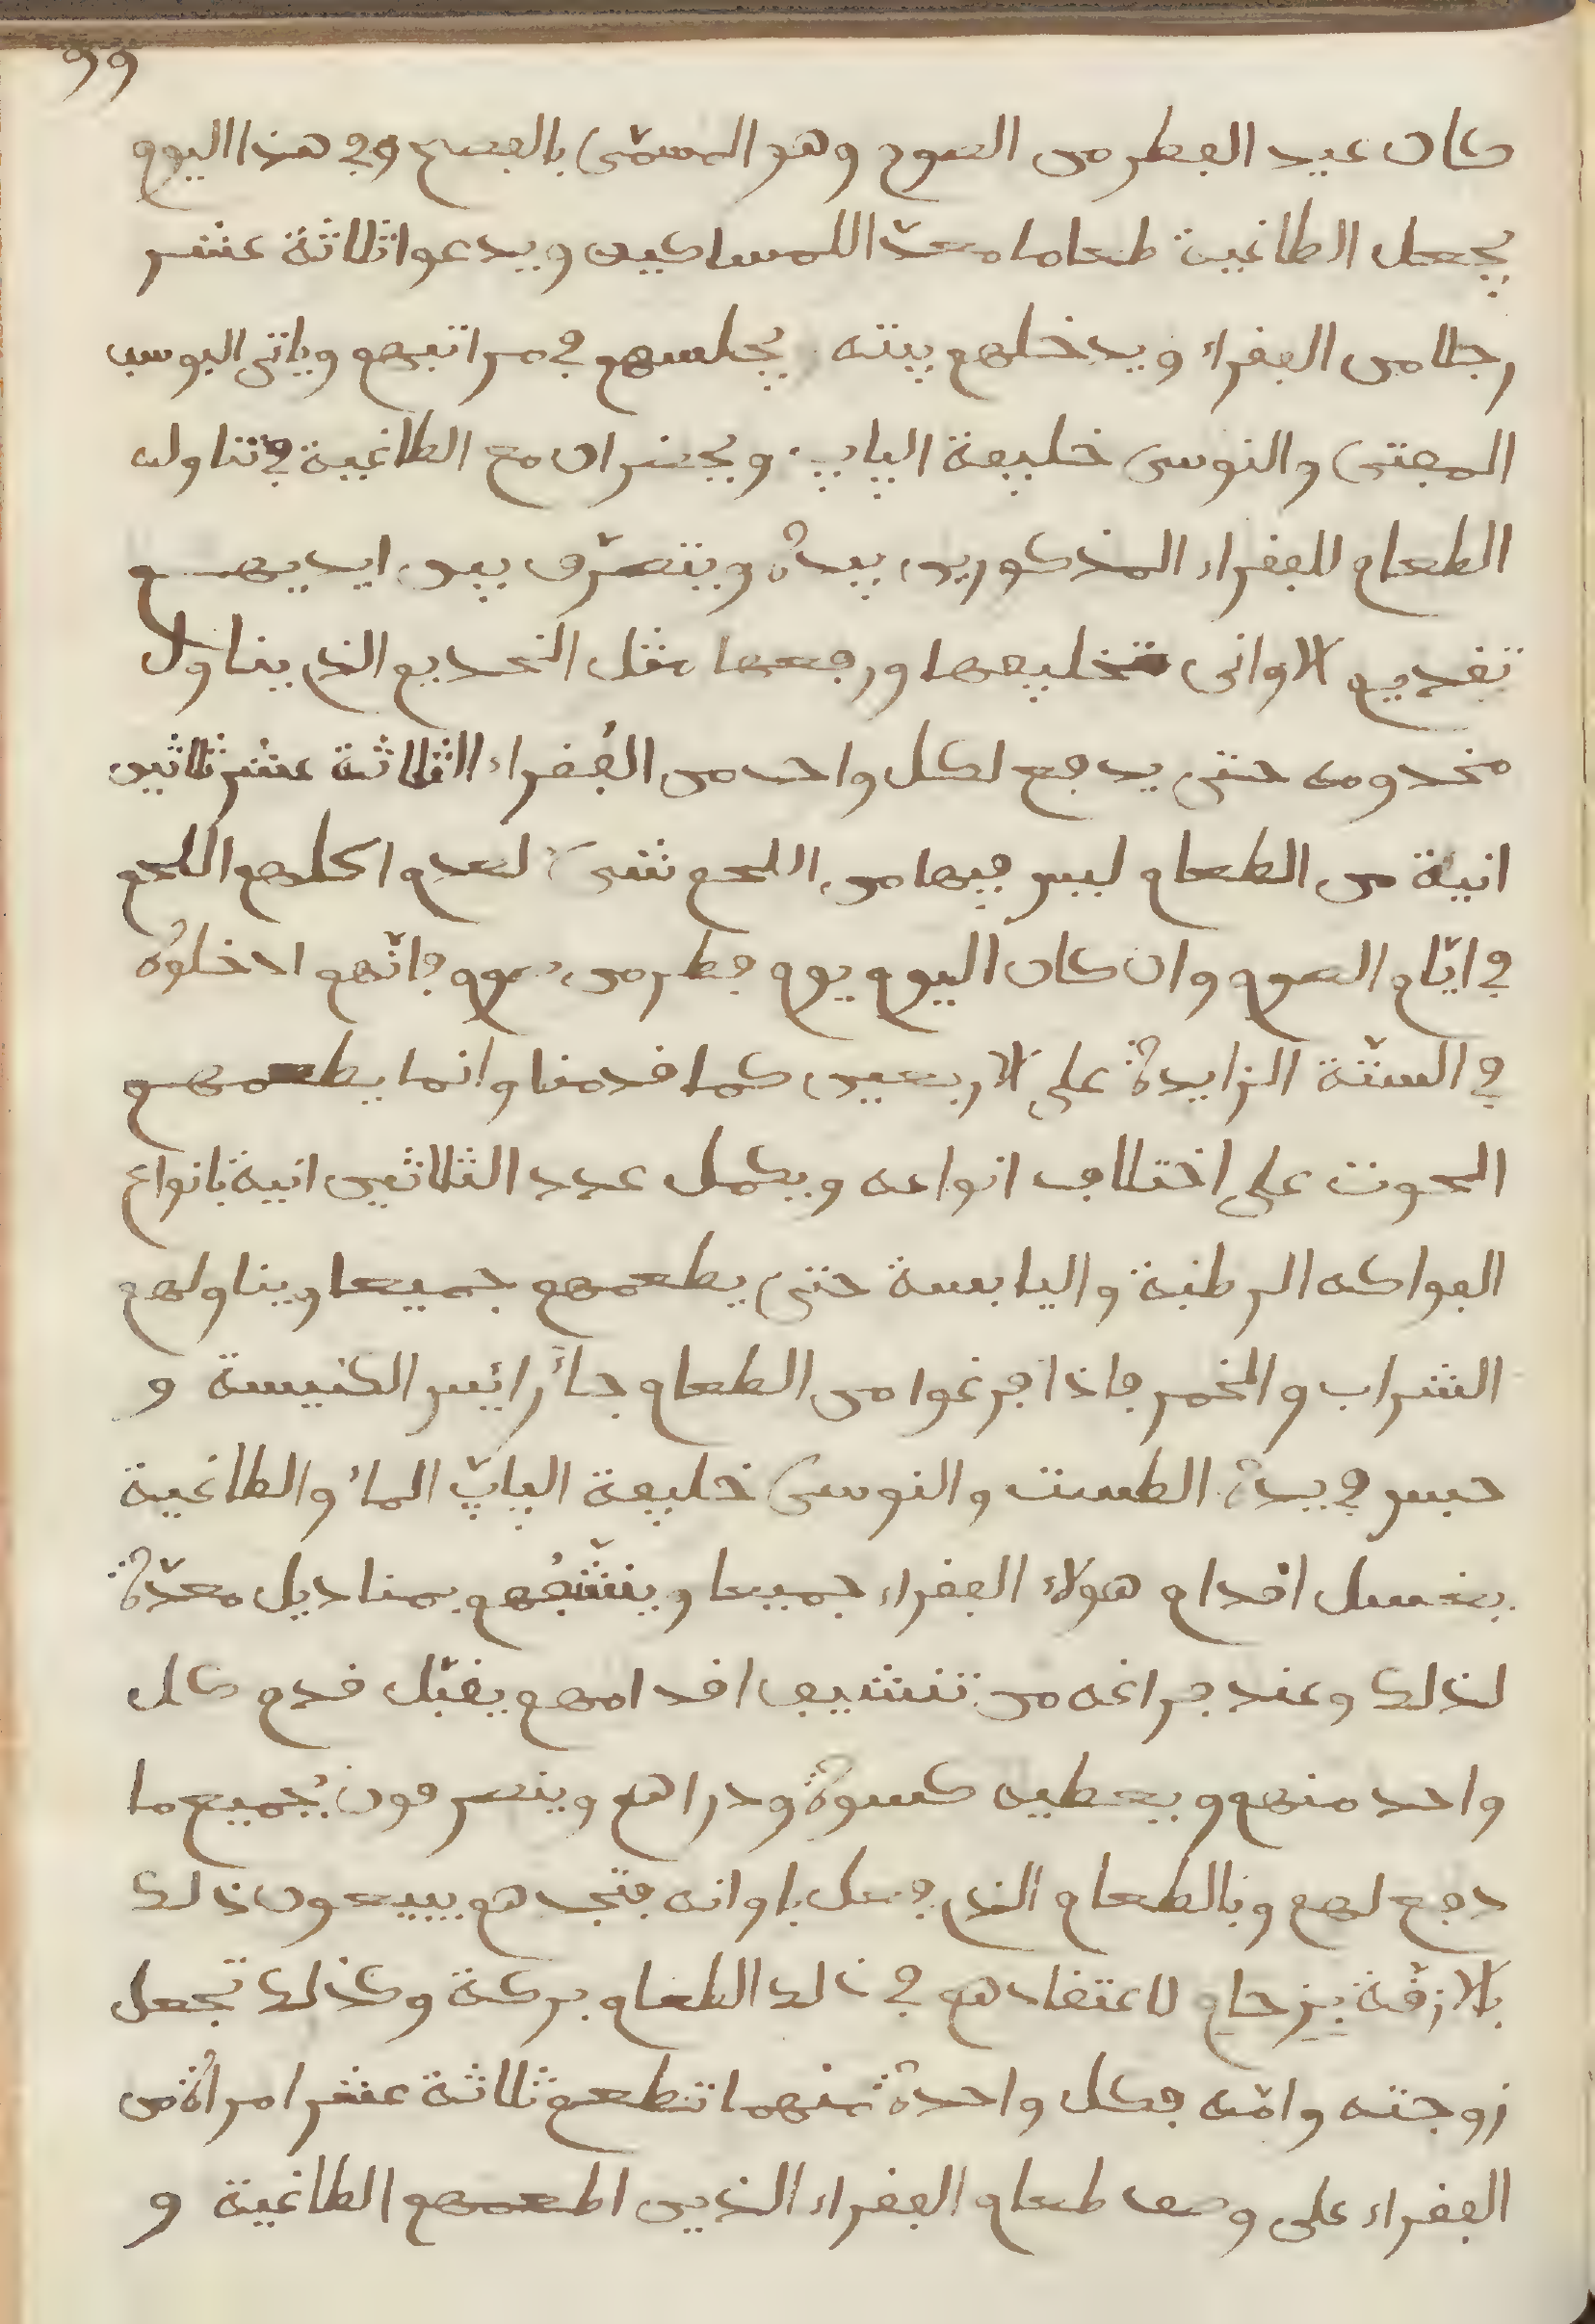 99
كان عيد الفطر من الصوم وهو المسمّى بالفصح وفي هذا اليوم
يجعل الطاغية طعاما معدّا للمساكين ويدعوا ثلاثة عشر
رجلا من الفقراء ويدخلهم بيته يجلسهم في مراتبهم وياتي البوسب
المفتى والنوسى خليفة الپاپ ويحضران مع الطاغية في تناوله
الطعام للفقراء المذكورين بيده ويتصرّف بين ايديهم
تقديم الاواني تخليفها ورفعها مثل الخديم الذي يناول
مخدومه حتى يدفع لكل واحد من الفقراء الثلاثة عشر ثلاثين
انية من الطعام ليس فيها من اللحم شيء لعدم اكلهم اللحم
في ايّام الصوم وان كان اليوم يوم فطر من صوم فانّهم ادخلوه
في الستّة الزايدة على الاربعين كما قدمنا وانما يطعمهم
الحوت على اختلاف انواعه ويكمل عدد الثلاثين انية بانواع
الفواكه الرطبة واليابسة حتى يطعمهم جميعا ويناولهم
الشراب والخمر فاذا فرغوا من الطعام جاء رائيس الكنيسة و
حبس في يده الطست والنوسى خليفة الپاپّ الماء والطاغية
يغسل اقدام هولاء الفقراء جميعا وينشّفهم بمناديل معدّة
لذلك وعند فراغه من تنشيف اقدامهم يقبّل قدم كل
واحد منهم ويعطيه كسوة ودراهم وينصرفون بجميع ما
دفع لهم وبالطعام الذي فضل باوانه فتجدهم يبيعون ذلك
بالازقّة بزحام لاعتقادهم في ذلك الطعام بركة وكذلك تجعل
زوجته وامّه فكل واحدة منهما تطعم ثلاثة عشر امراة من
الفقراء على وصف طعام الفقراء الذين اطعمهم الطاغية و